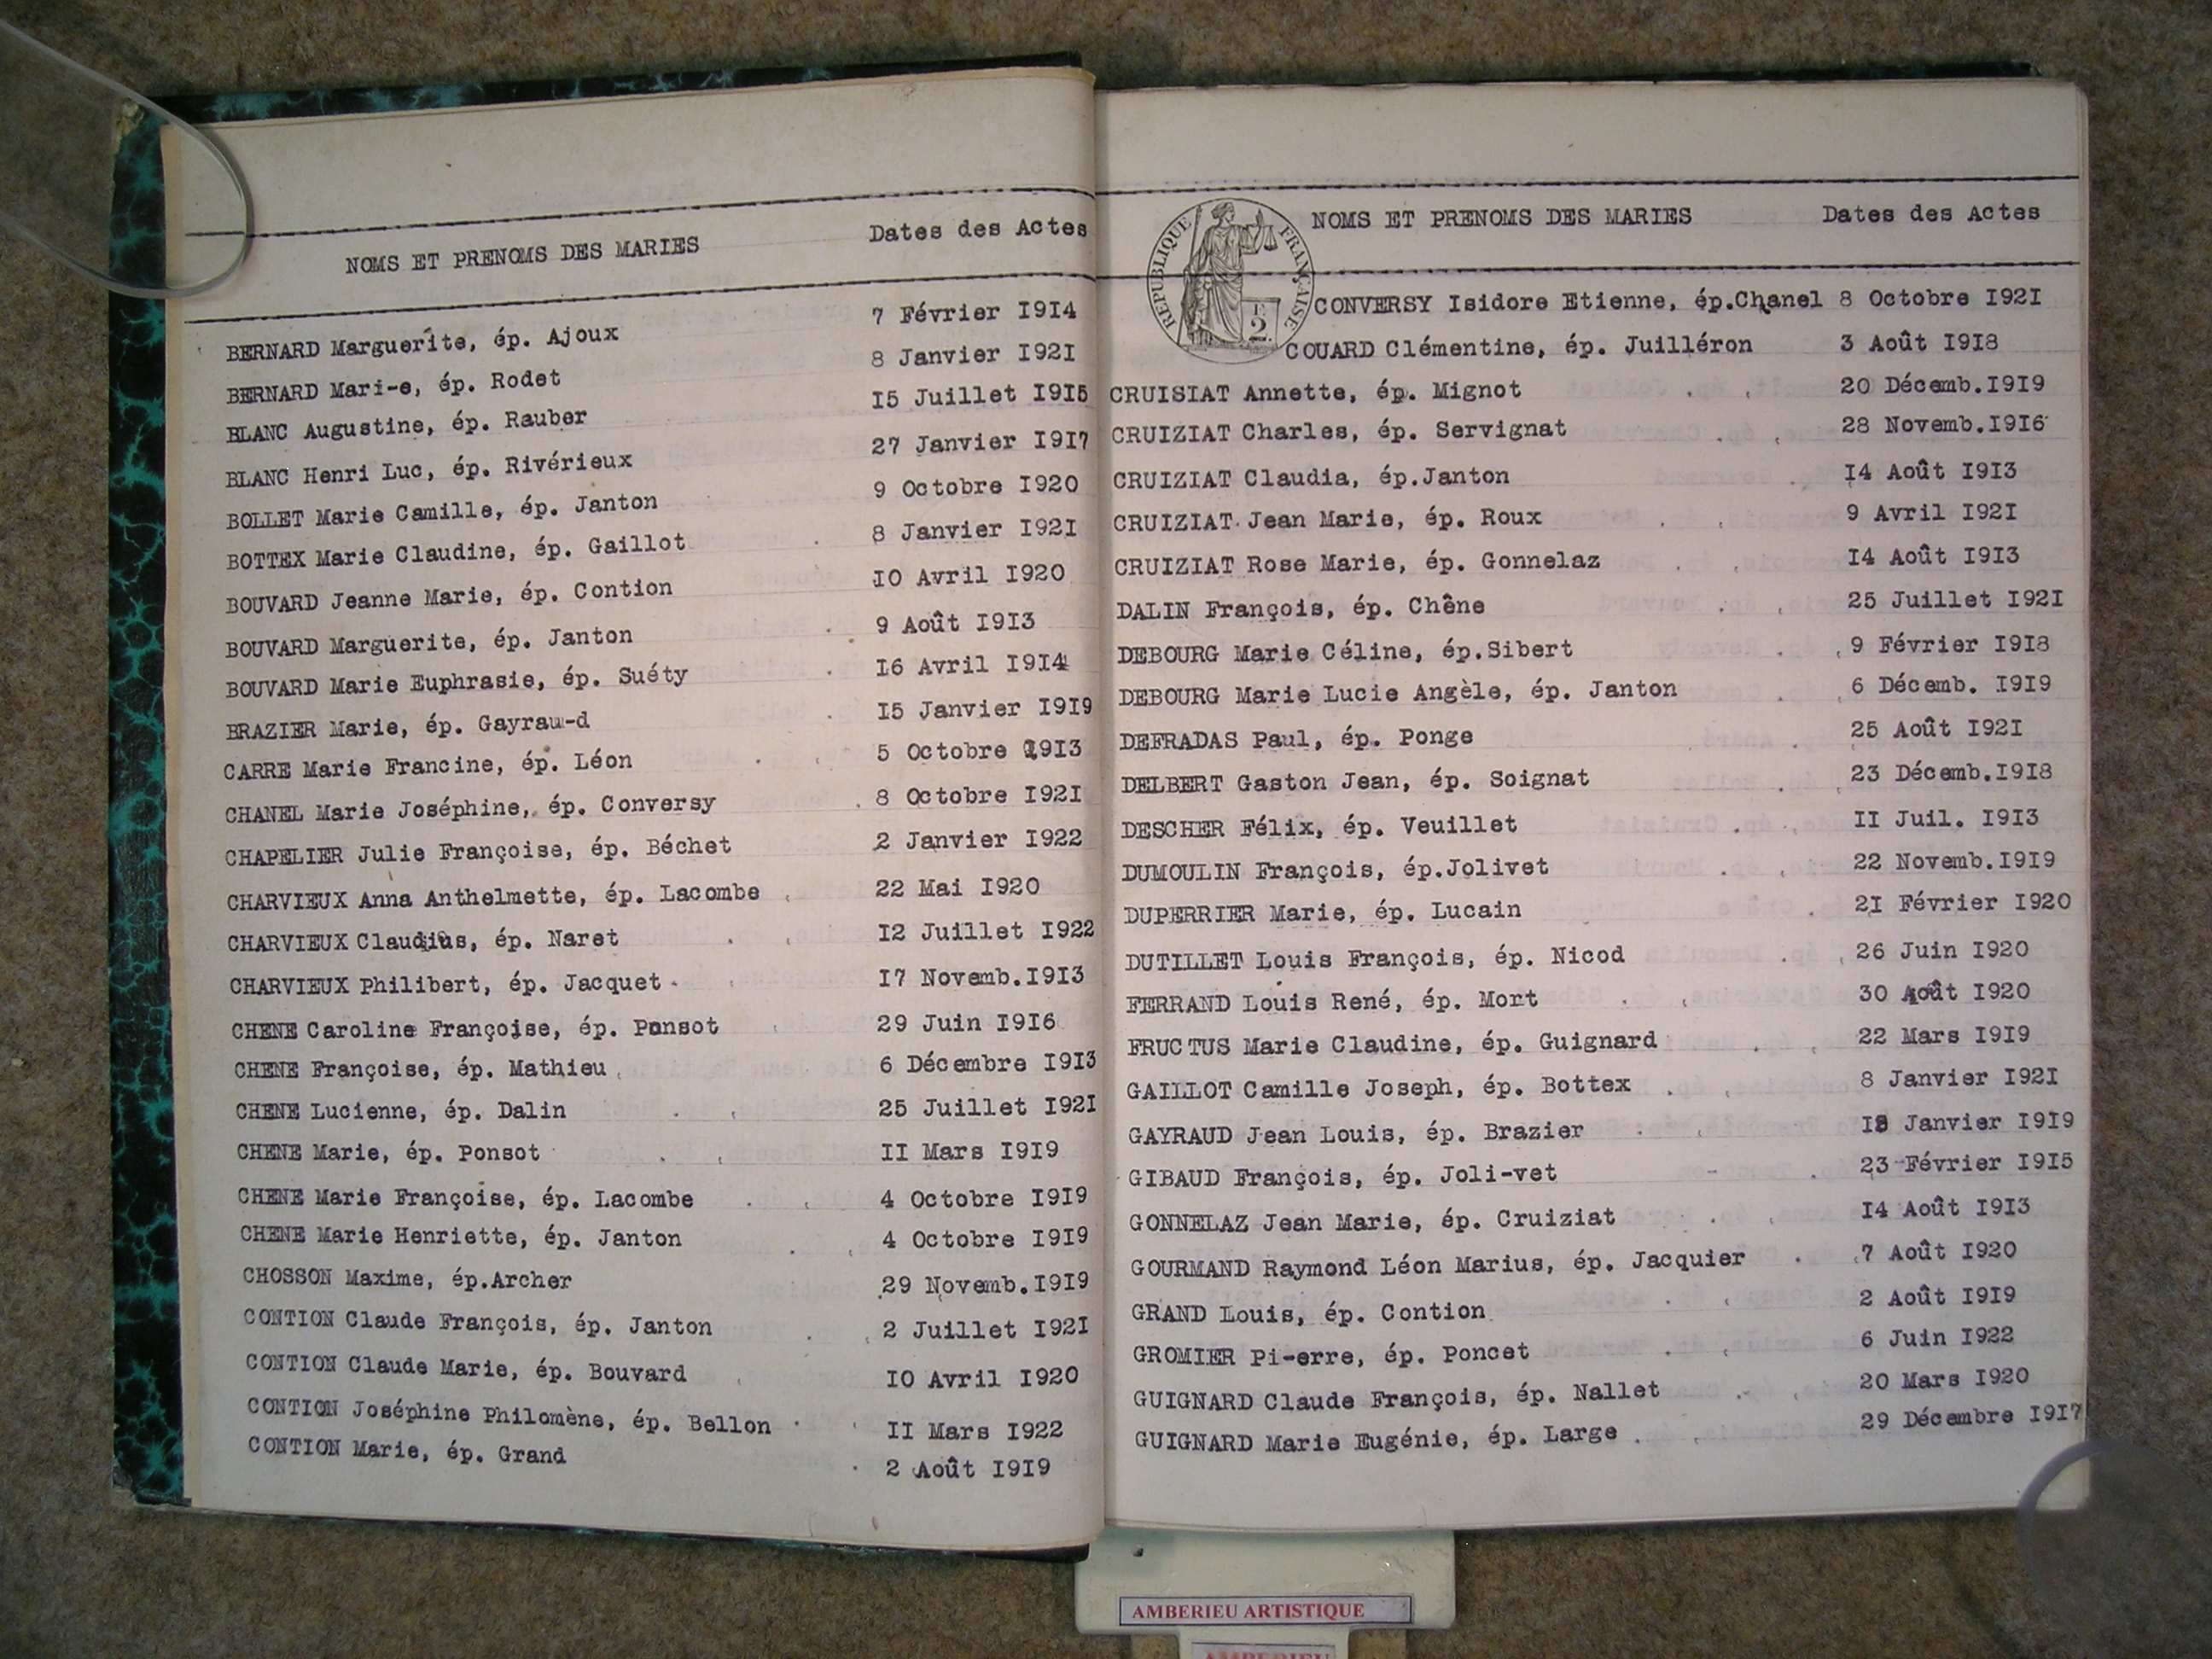 NOMS ET PRENOMS DES MARIES Dates des Actes
BERNARD Marguerite, ép. Ajoux 7 Février I9I4
BERNARD Mari-e, ép. Rodet 8 Janvier I92I
BLANC Augustine, ép. Rauber I5 Juillet I9I5
BLANC Henri Luc, ép. Rivérieux 27 Janvier I9I7
BOLLET Marie Camille, ép. Janton 9 Octobre I920
BOTTEX Marie Claudine, ép. Gaillot 8 Janvier I92I
BOUVARD Jeanne Marie, ép. Contion I0 Avril I920
BOUVARD Marguerite, ép. Janton 9 Août I9I3
BOUVARD Marie Euphrasie, ép. Suéty I6 Avril I9I4
BRAZIER Marie, ép. Gayrau-d I5 Janvier I9I9
CARRE Marie Francine, ép. Léon 5 Octobre I9I3
CHANEL Marie Joséphine, ép. Conversy 8 Octobre I92I
CHAPELIER Julie Françoise, ép. Béchet 2 Janvier I922
CHARVIEUX Anna Anthelmette, ép. Lacombe 22 Mai I920
CHARVIEUX Claudius, ép. Naret I2 Juillet I922
CHARVIEUX Philibert, ép. Jacquet I7 Novemb.I9I3
CHENE Caroline Françoise, ép. Ponsot 29 Juin I9I6
CHENE Françoise, ép. Mathieu 6 Décembre I9I3
CHENE Lucienne, ép. Dalin 25 Juillet I92I
CHENE Marie, ép. Ponsot II Mars I9I9
CHENE Marie Françoise, ép. Lacombe 4 Octobre I9I9
CHENE Marie Henriette, ép. Janton 4 Octobre I9I9
CHOSSON Maxime, ép.Archer 29 Novemb.I9I9
CONTION Claude François, ép. Janton 2 Juillet I92I
CONTION Claude Marie, ép. Bouvard I0 Avril I920
CONTION Joséphine Philomène, ép. Bellon II Mars I922
CONTION Marie, ép. Grand 2 Août I9I9
REPUBLIQUE FRANÇAISE
2
NOMS ET PRENOMS DES MARIES Dates des Actes
CONVERSY Isidore Etienne, ép.Chanel 8 Octobre I92I
COUARD Clémentine, ép. Juilléron 3 Août I9I8
CRUISIAT Annette, ép. Mignot 20 Décemb.I9I9
CRUIZIAT Charles, ép. Servignat 28 Novemb.I9I6
CRUIZIAT Claudia, ép.Janton I4 Août I9I3
CRUIZIAT Jean Marie, ép. Roux 9 Avril I92I
CRUIZIAT Rose Marie, ép. Gonnelaz I4 Août I9I3
DALIN François, ép. Chêne 25 Juillet I92I
DEBOURG Marie Céline, ép.Sibert 9 Février I9I8
DEBOURG Marie Lucie Angèle, ép. Janton 6 Décemb. I9I9
DEFRADAS Paul, ép. Ponge 25 Août I92I
DELBERT Gaston Jean, ép. Soignat 23 Décemb.I9I8
DESCHER Félix, ép. Veuillet II Juil. I9I3
DUMOULIN François, ép.Jolivet 22 Novemb.I9I9
DUPERRIER Marie, ép. Lucain 2I Février I920
DUTILLET Louis François, ép. Nicod 26 Juin I920
FERRAND Louis René, ép. Mort 30 Août I920
FRUCTUS Marie Claudine, ép. Guignard 22 Mars I9I9
GAILLOT Camille Joseph, ép. Bottex 8 Janvier I92I
GAYRAUD Jean Louis, ép. Brazier Janvier I9I9
GIBAUD François, ép. Joli-vet 23 Février I9I5
GONNELAZ Jean Marie, ép. Cruiziat I4 Août I9I3
GOURMAND Raymond Léon Marius, ép. Jacquier 7 Août I920
GRAND Louis, ép. Contion 2 Août I9I9
GROMIER Pi-erre, ép. Poncet 6 Juin I922
GUIGNARD Claude François, ép. Nallet 20 Mars I920
GUIGNARD Marie Eugénie, ép. Large 29 Décembre I9I7
AMBERIEU ARTISTIQUE
AMBERIEU